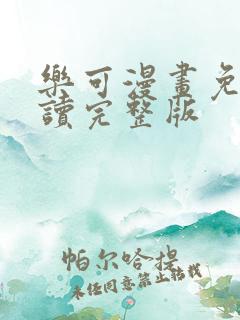 樂可漫畫免
讀完整版
帕尔哈提
未经同意禁止转载